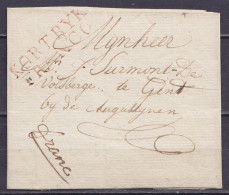 CORTRYK
FRANCO
Mynheer
Surmont De
Volsberge te Gent
by de Augustynen
franc